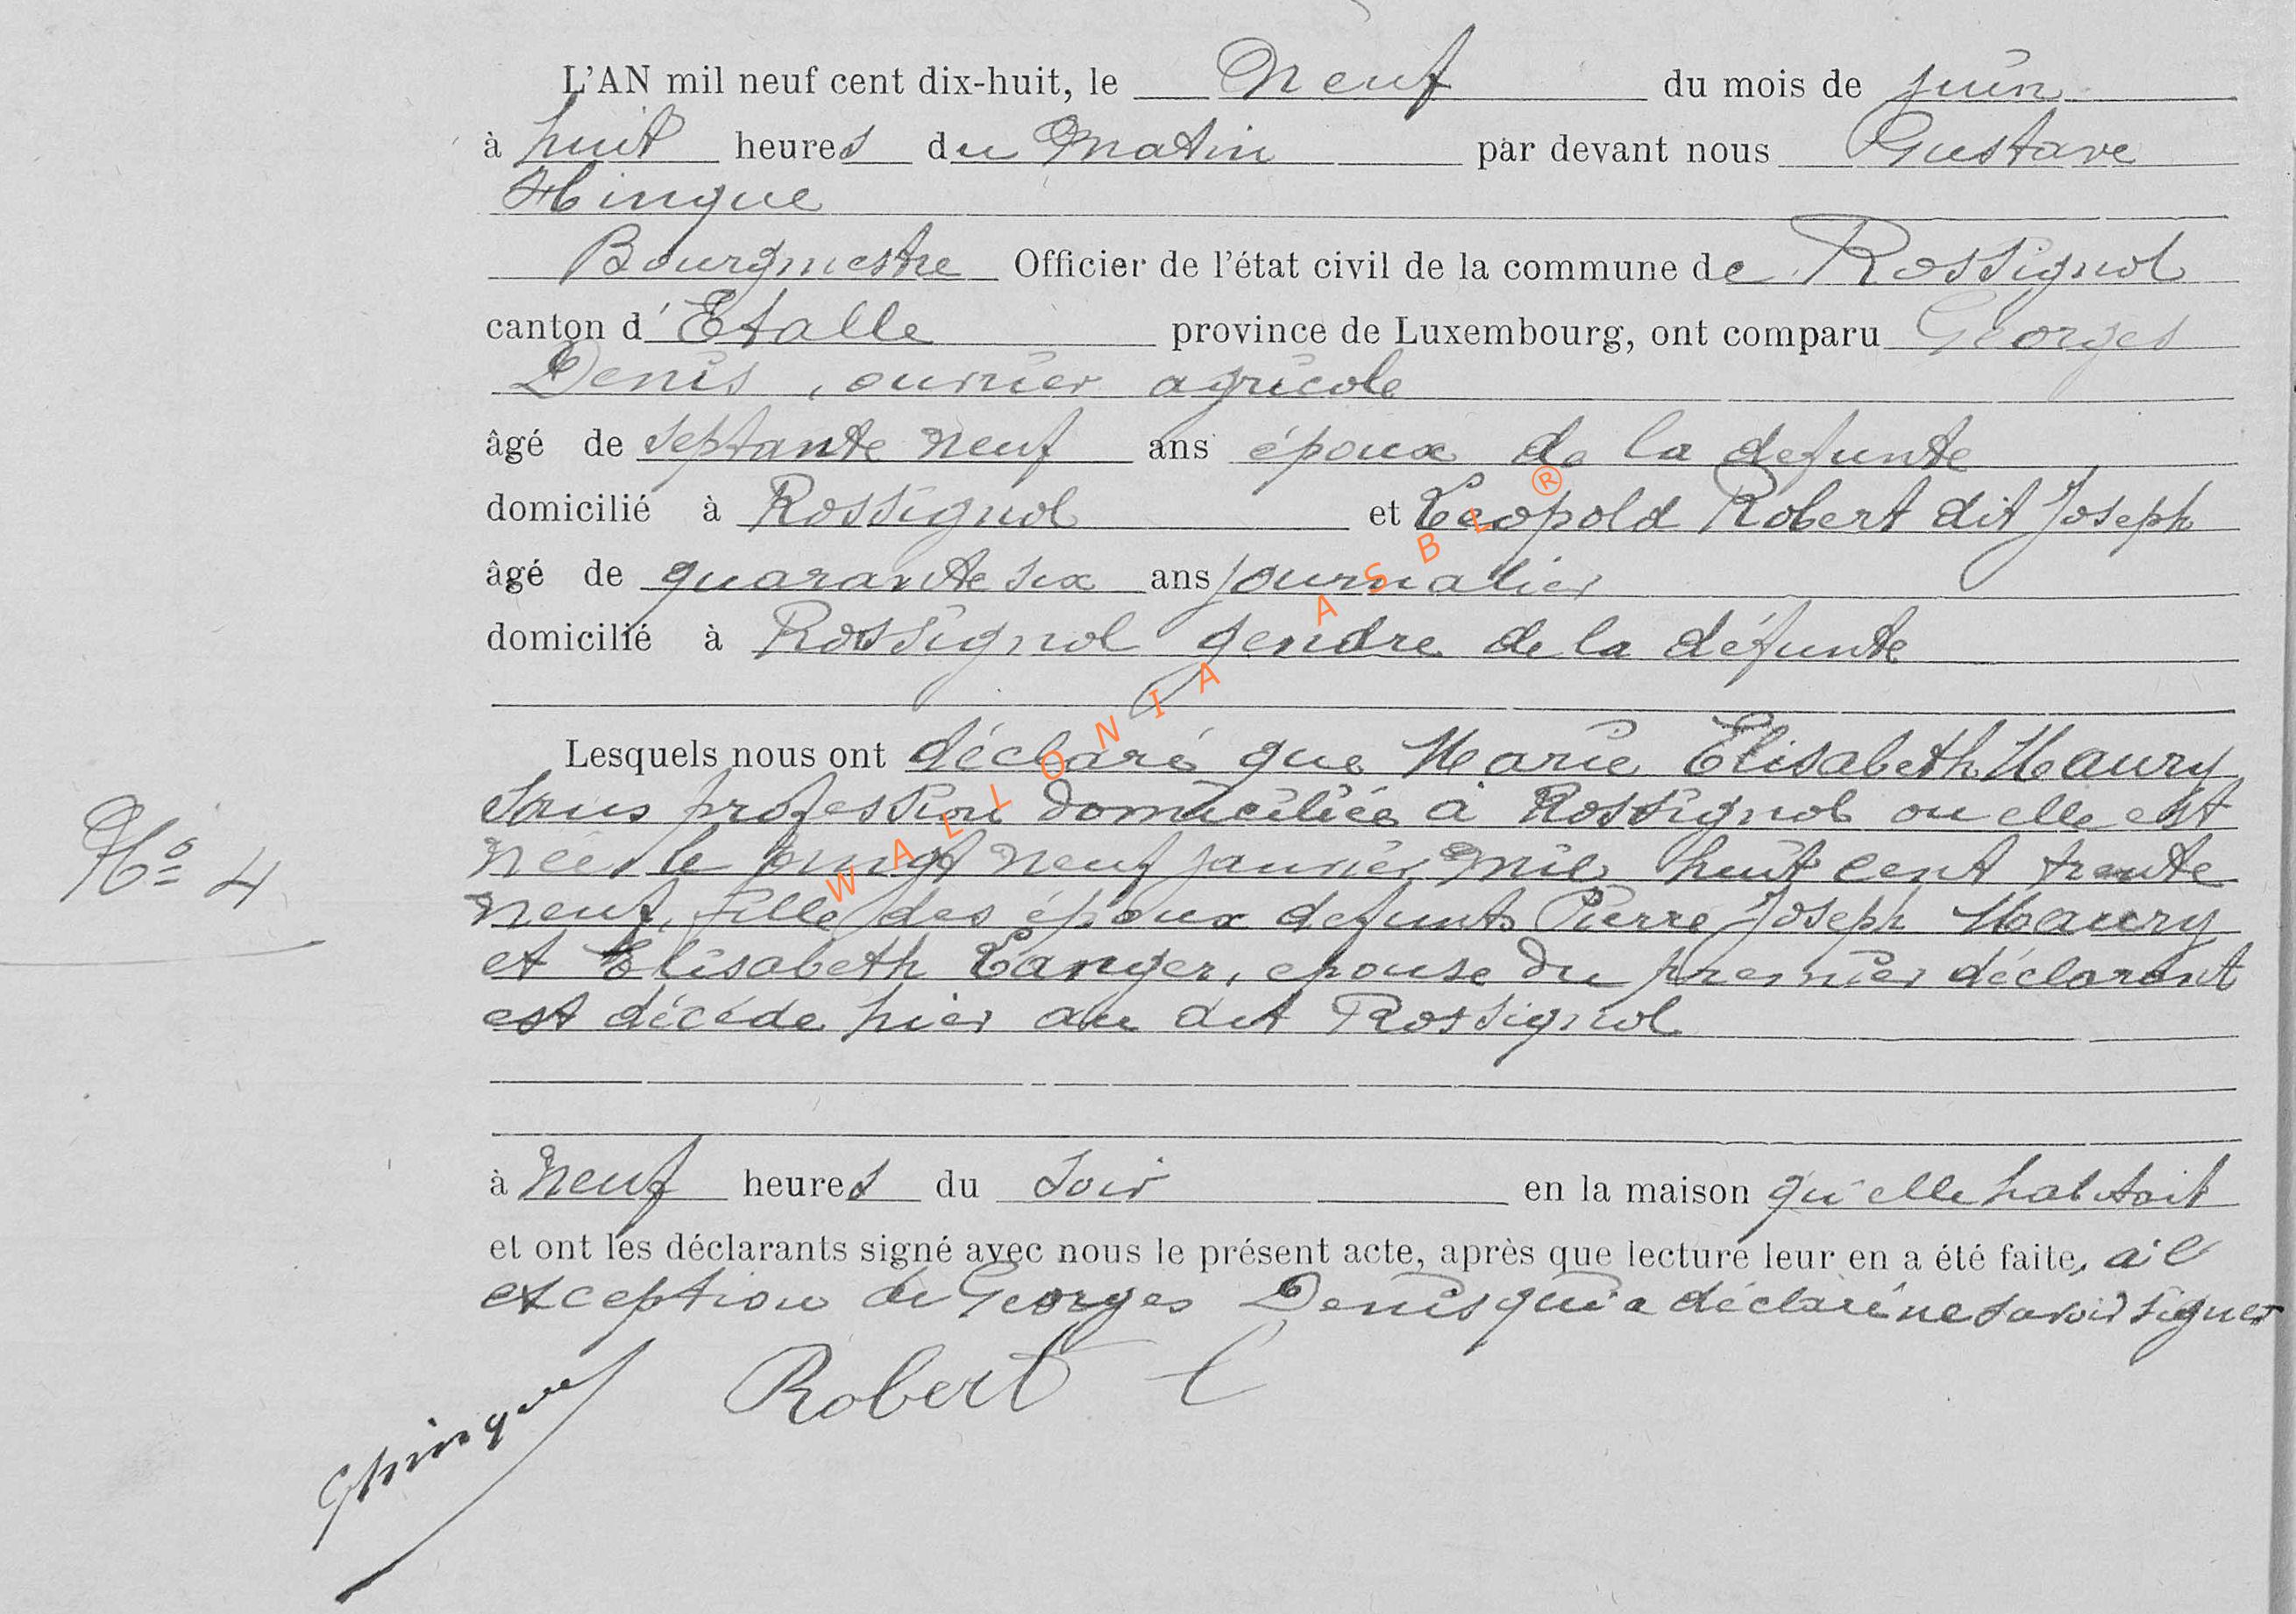 L'AN mil neuf cent dix-huit, le Neuf du mois de juin
à huit heures du Matin par devant nous Gustave
Hinque
Bourgmestre Officier de l'état civil de la commune de Rossignol
canton d'Etalle province de Luxembourg, ont comparu Georges
Denis, ouvrier agricole
âgé de septante neuf ans époux de la defunte
domicilié à Rossignol et Léopold Robert dit Joseph
âgé de quarante six ans journalier
domicilié à Rossignol gendre de la défunte
Lesquels nous ont déclaré que Marie Elisabeth Maury
sans profession domiciliée à Rossignol ou elle est
née le vingt neuf janvier mil huit cent trente
neuf, fille des époux defunts Pierre Joseph Maury
No 4
et Elisabeth Langer, epouse du premier déclarant
est décéde hier au dit Rossignol
à neuf heures du soir en la maison qu'elle habitait
et ont les déclarants signé avec nous le présent acte, après que lecture leur en a été faite, à l'
exception de Georges Denis qui a déclaré ne savoir signer
Robert L
GHinque
WALLONIA ASBL ®